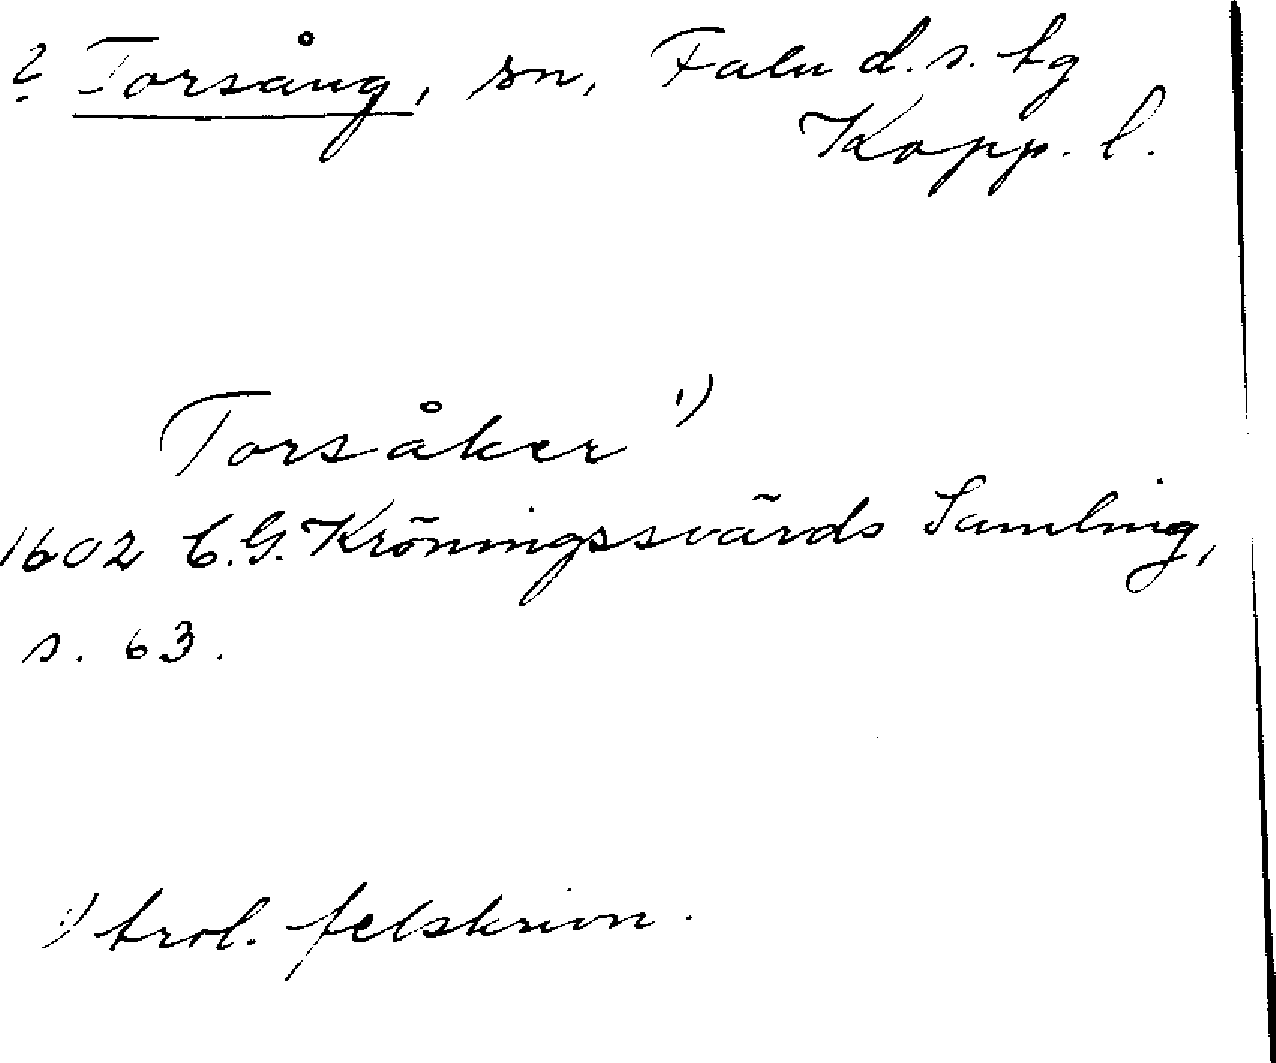 ? Torsång, sn, Falu d.s. tg
Kopp. l.
Torsåker ¹)
1602 C.G. Kröningssvärds Samling,
s. 63.
¹) trol. felskrivn.